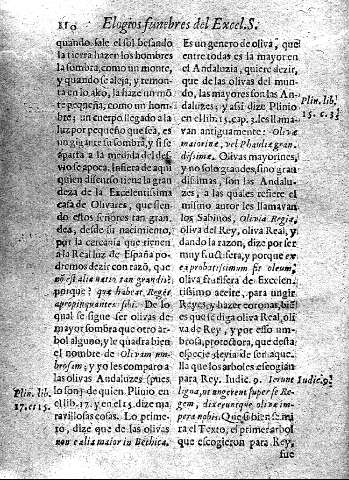 110 Elogios funebres del Excel. S.
quando sale el sol besando
la tierra hazen los hombres
la sombra, como un monte,
y quando se aleja, y remon-
ta en lo alto, la haze un mô
te pequeña, como un hom-
bre; un cuerpo llegado a la
luz por pequeño que sea, es
un gigante su sombra, y si se
aparta a la medida del des
vio se apoca. Infiera de aqui
quien discurso tiene la gran
deza de la Excelentissima
casa de Olivares, que sien
do estos señores tan gran
des, desde su nacimiento,
por la cercania que tienen
a la Real luz de España po
dremos dezir con razô, que
nô est alia natio tan grandis:
porque? quæ habeat Reges
apropinquantes sibi. De lo
qual se sigue ser olivas de
mayor sombra que otro ar-
bol alguno, y le quadra bien
el nombre de Olivam um-
brosam; y yo les comparo a
las olivas Andaluzes (pues
lo son) de quien Plinio en
el lib. 17. y en el 15. dize ma
ravillosas cosas. Lo prime-
ro, dize que de las olivas
non est alia maior in Bethica.
Plin. lib.
17. et 15.
Es un genero de oliva, que
entre todas es la mayor en
el Andaluzia, quiere dezir,
que de las olivas del mundo,
las mayores son las An-
daluzes; y asi dize Plinio
en el lib. 15. cap. 3. les llama-
van antiguamente: Olivæ
maiorinæ, vel Phauliæ gran
dissimæ. Olivas mayorines,
y no solo grandes, sino gran
dissimas, son las Andalu-
zes, a las quales refiere el
mismo autor les llamavan
los Sabinos, Olivia Regia,
oliva del Rey, oliva Real, y
dando la razon, dize por ser
muy fructifera, y porque ex
ea probatissimum fit oleum,
oliva frutifera de Excelen-
tissimo aceite, para ungir
Reyes, y hazer coronas, bien
es que se diga oliva Real, oli
va de Rey, y por esso um-
brosa, protectora, que desta
especie devia de ser aque-
lla que los arboles escogian
para Rey. Iudic. 9. Ierunt
ligna, ut ungerent super se Re
gem, dixeruntque olivæ im-
pera nobis. Que si bien se mi
ra el Texto, el primer arbol
que escogieron para Rey,
fue
Plin. lib.
15. c. 3.
Iudic. 9.